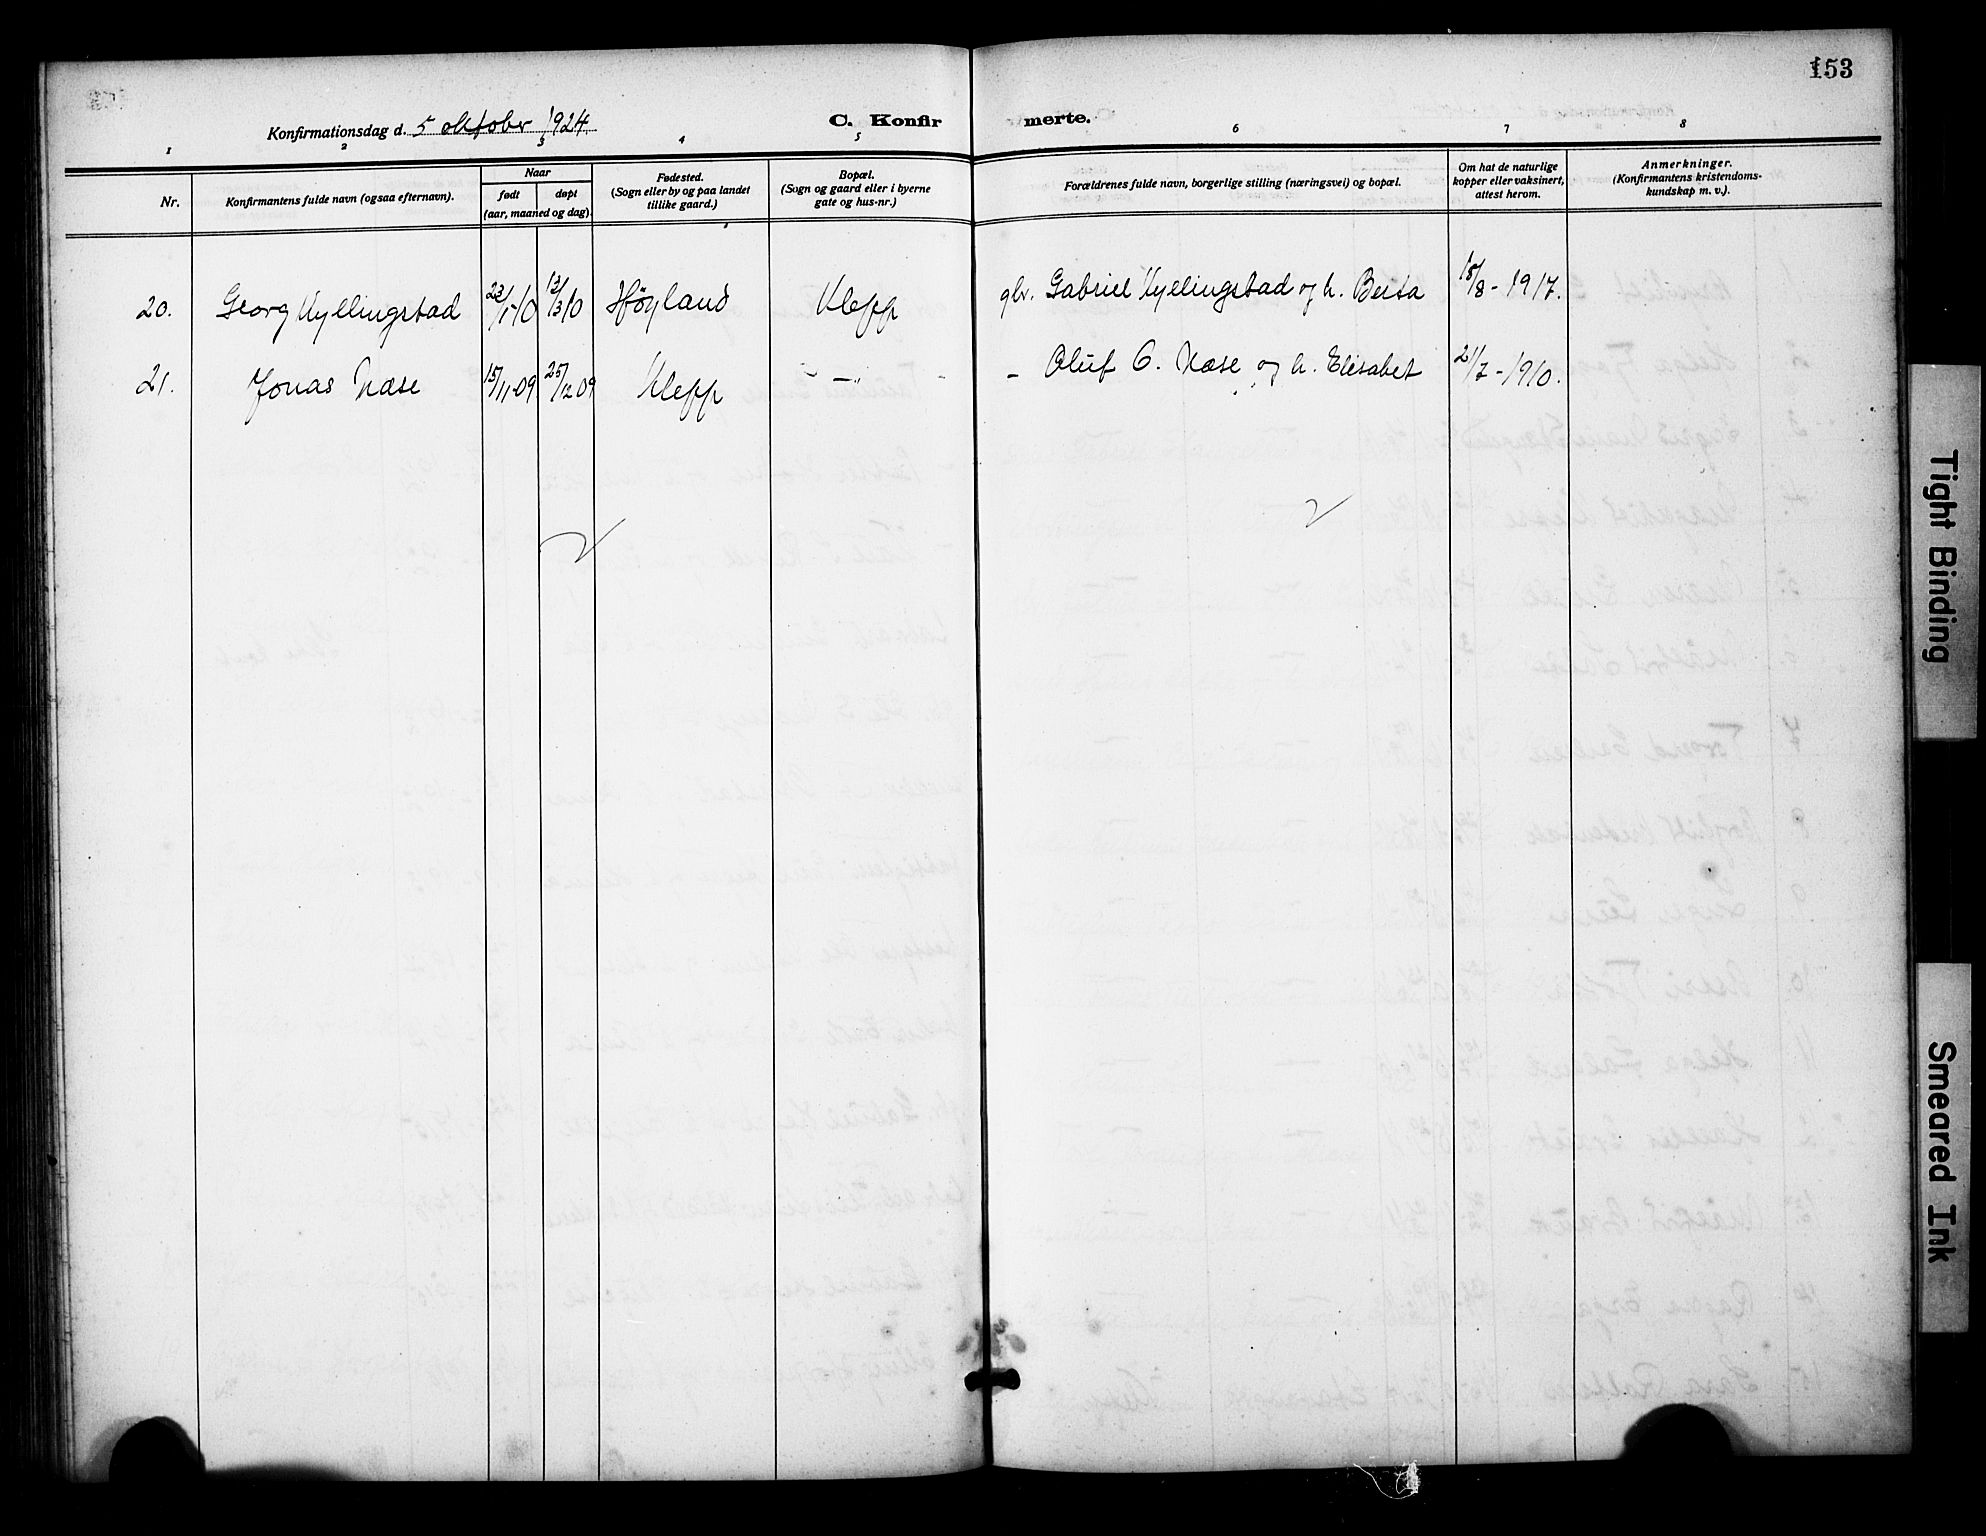 153
Konfirmationsdag d. 5 oktober 1924. C. Konfir merte.
1 2 3 4 5 6 7 8
Nr.
Konfirmantens fulde navn (ogsaa efternavn).
Naar
født
døpt
(aar, maaned og dag)
Fødested.
(Sogn eller by og paa landet
tillike gaard.)
Bopæl.
(Sogn og gaard eller i byerne
gate og hus-nr.)
Forældrenes fulde navn, borgerlige stilling (næringsvei) og bopæl.
Om hat de naturlige
kopper eller vaksinert,
attest herom.
Anmerkninger.
(Konfirmantens kristendoms-
kundskap m. v.).
20. Georg Kyllingstad 23/1-10 13/3 10 Høyland Klepp gbr. Gabriel Kyllingstad og h. Berta 15/8-1917.
21. Jonas Næse 15/11-09 25/12 09 Klepp -"- - Oluf C. Næse og h. Elisabet 21/7-1910.
Tight Binding
Smeared Ink